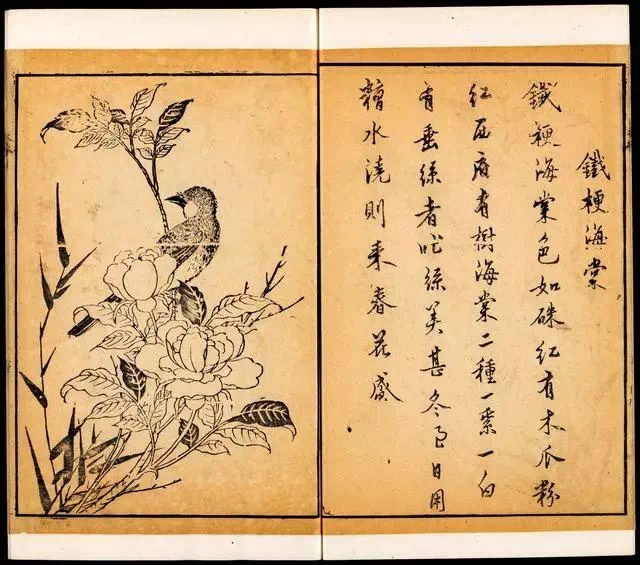 鐵梗海棠
鐵梗海棠色如硃紅有木瓜粉
紅西府有樹海棠二種一紫一白
有垂絲者吐絲美甚冬至日用
糟水澆則來春花盛